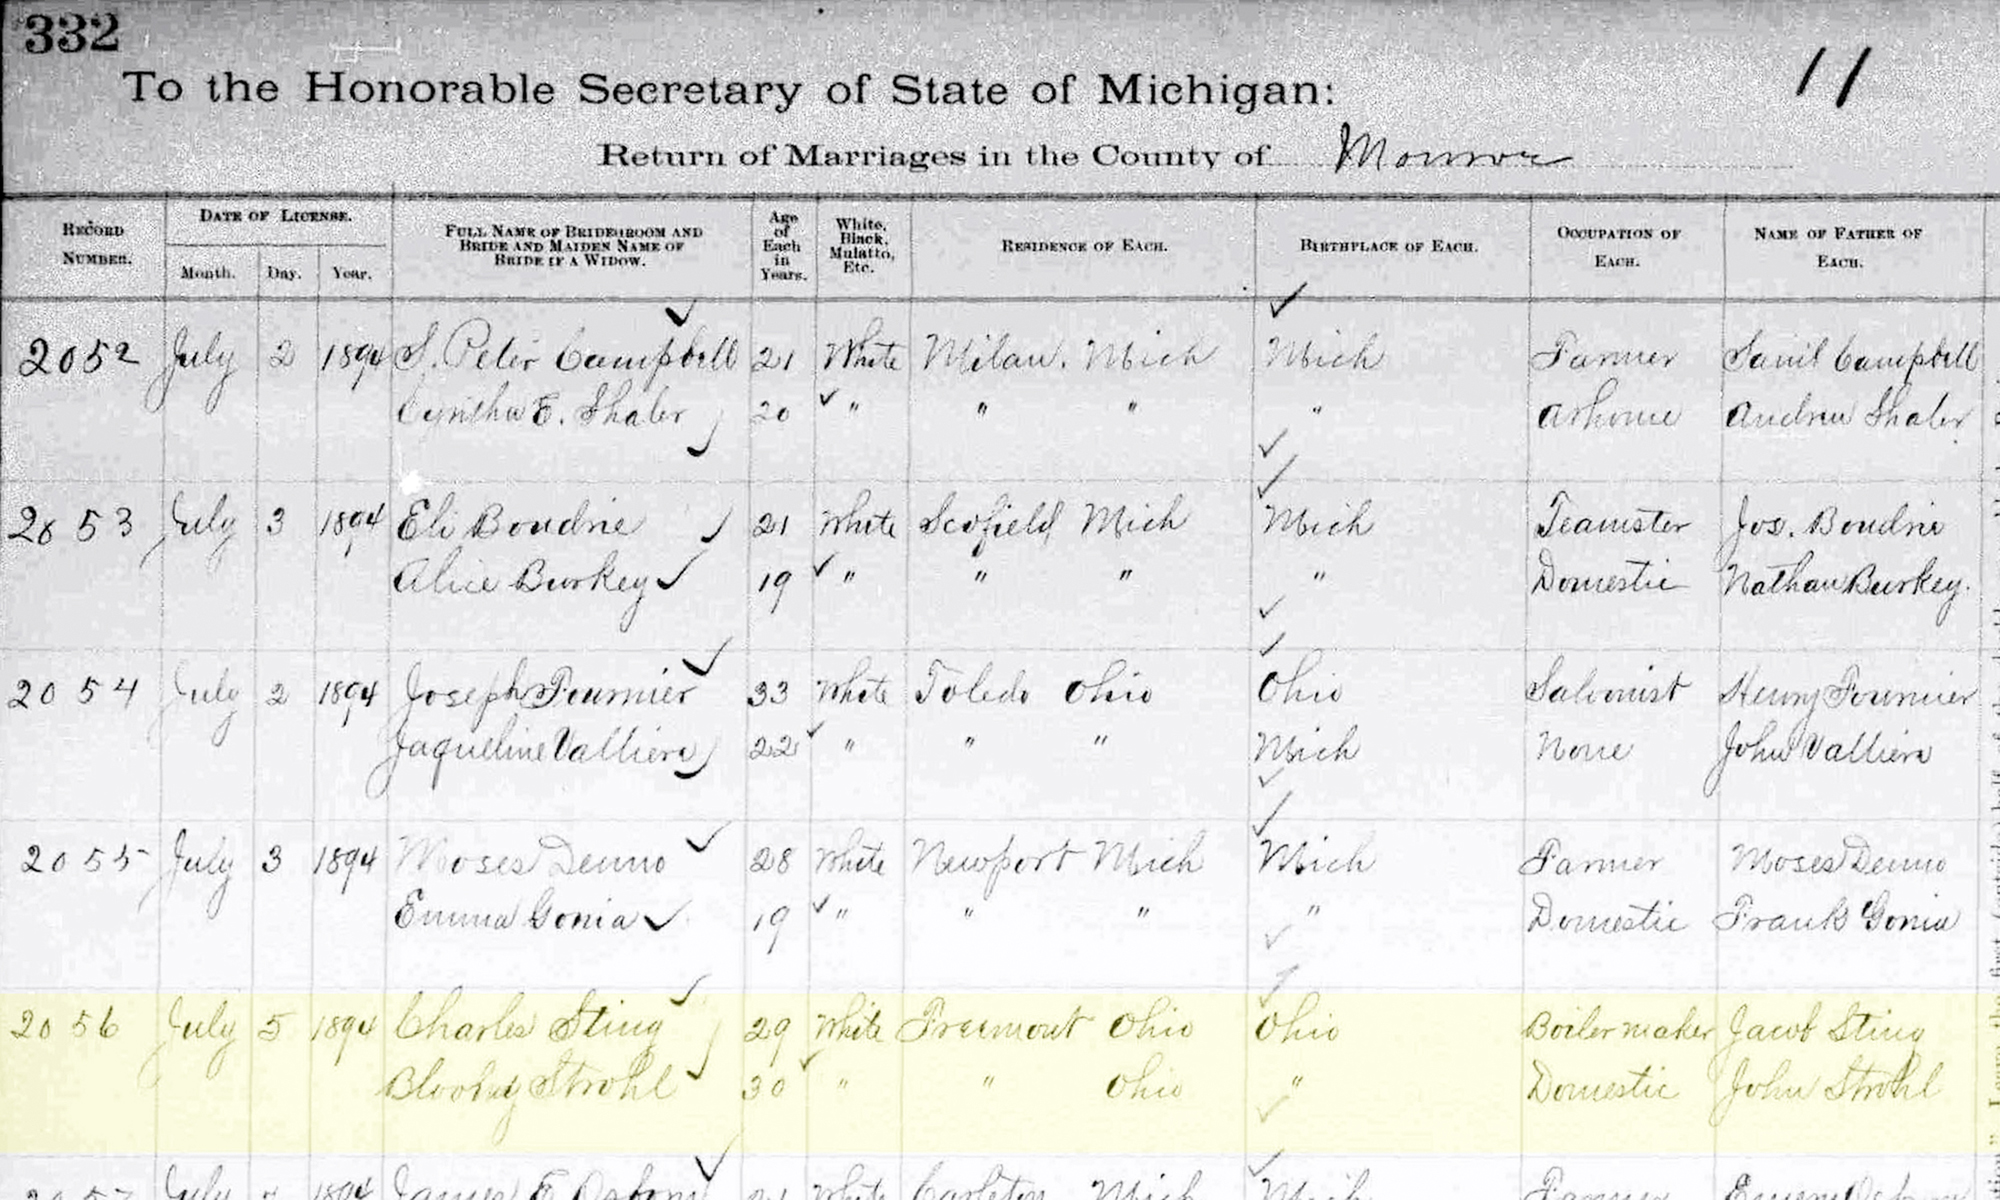 332
11
To the Honorable Secretary of State of Michigan:
Return of Marriages in the County of Monroe
RECORD NUMBER. DATE OF LICENSE. Month. Day. Year. FULL NAME OF BRIDEGROOM AND BRIDE AND MAIDEN NAME OF BRIDE IF A WIDOW. Age of Each in Years. White, Black, Mulatto, Etc. RESIDENCE OF EACH. BIRTHPLACE OF EACH. OCCUPATION OF EACH. NAME OF FATHER OF EACH.
2052 July 2 1894 S. Peter Campbell 21 White Milan. Mich Mich Farmer Saml Campbell
Cynthia E. Shaler 20 " " " " At home Andrew Shaler
2053 July 3 1894 Eli Boudrie 21 White Scofield Mich Mich Teamster Jos. Boudrie
Alice Burkey 19 " " " " Domestic Nathan Burkey.
2054 July 2 1894 Joseph Fournier 33 White Toledo Ohio Ohio Henry Fournier
Jaqueline Valliere 22 " " " Mich None John Valliere
2055 July 3 1894 Moses Denno 28 White Newport Mich Mich Farmer Moses Denno
Emma Gonia 19 " " " " Domestic Frank Gonia
2056 July 5 1894 Charles Sting 29 White Freemont Ohio Ohio Boilermaker Jacob Sting
Strohl 30 " " Ohio " Domestic John Strohl
2057 July 1894 James E Osborn 21 White Carleton Mich Mich Farmer